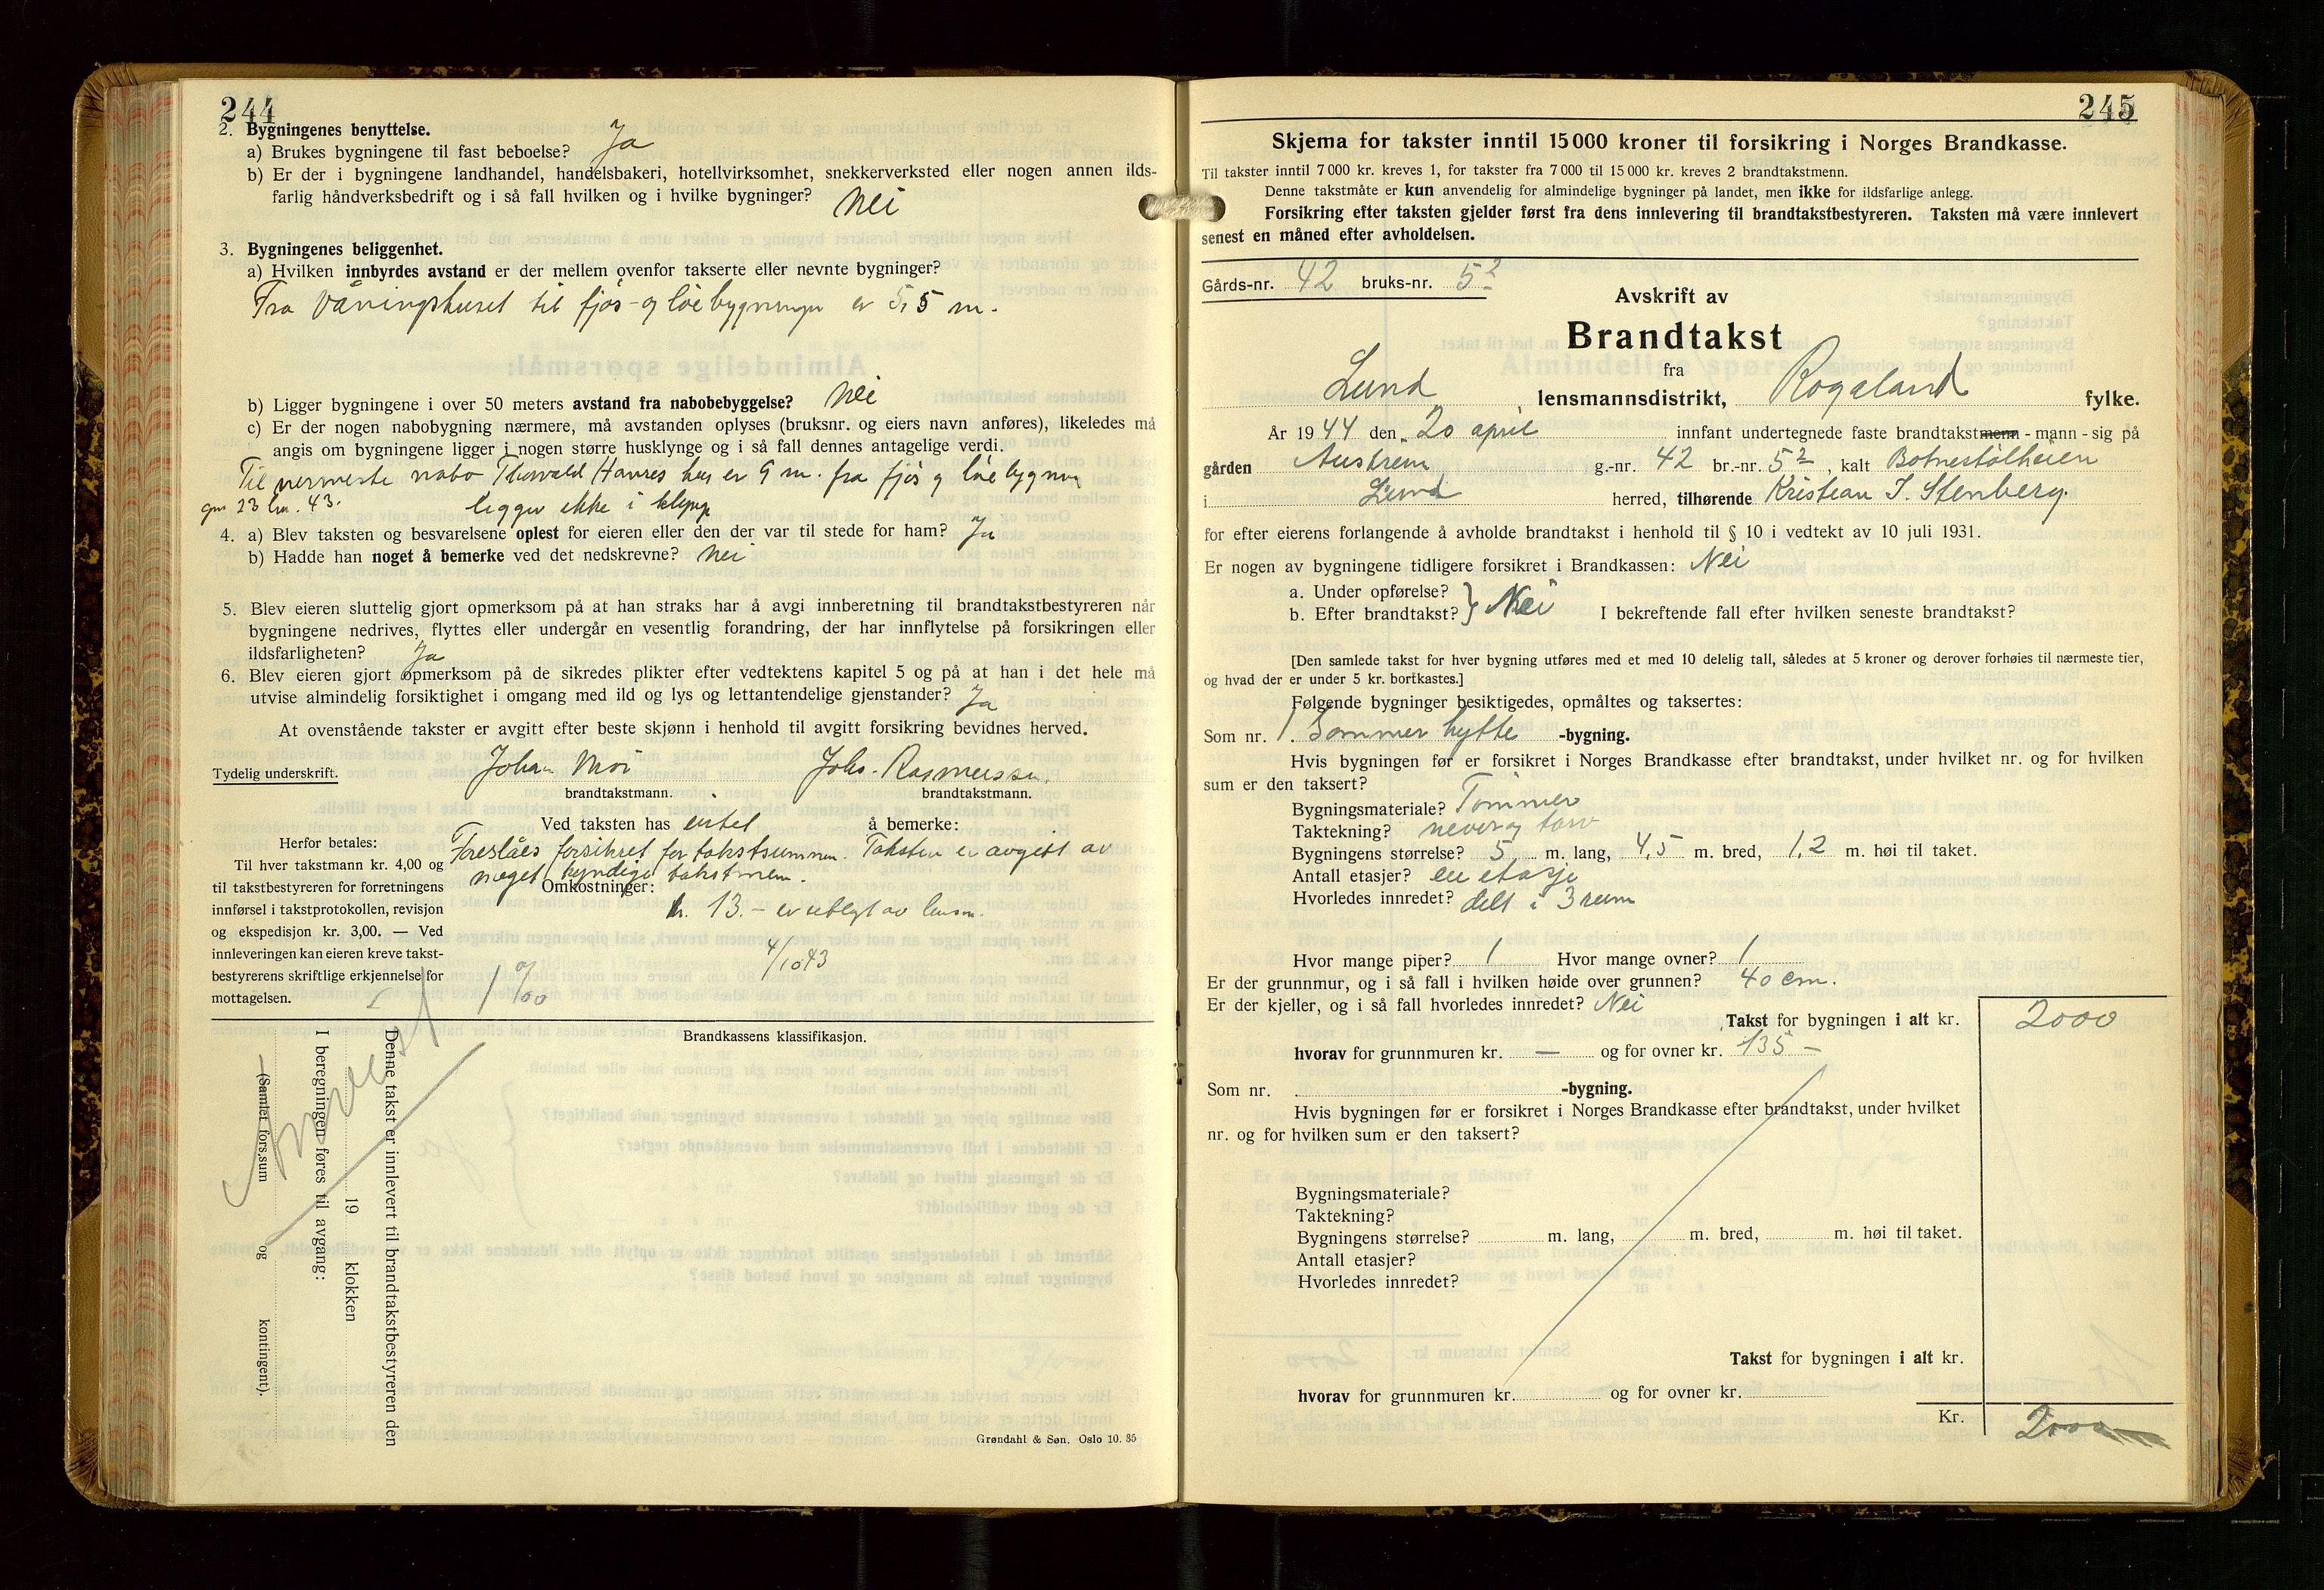 244
2. Bygningenes benyttelse.
a) Brukes bygningene til fast beboelse? Ja
b) Er der i bygningene landhandel, handelsbakeri, hotellvirksomhet, snekkerverksted eller nogen annen ilds-
farlig håndverksbedrift og i så fall hvilken og i hvilke bygninger? Nei
3. Bygningenes beliggenhet.
a) Hvilken innbyrdes avstand er der mellem ovenfor takserte eller nevnte bygninger?
Fra våningshuset til fjos- og løebygningen er 5,5 m.
b) Ligger bygningene i over 50 meters avstand fra nabobebyggelse? Nei
c) Er der nogen nabobygning nærmere, må avstanden oplyses (bruksnr. og eiers navn anføres), likeledes må
angis om bygningene ligger i nogen større husklynge og i så fall dennes antagelige verdi.
Til nermeste nabo Thorvald Haures hus er 9 m. fra fjos og løebygning
gnr 23 bnr. 43. ligger ikke i klynge
4. a) Blev taksten og besvarelsene oplest for eieren eller den der var til stede for ham? Ja
b) Hadde han noget å bemerke ved det nedskrevne? Nei
5. Blev eieren sluttelig gjort opmerksom på at han straks har å avgi innberetning til brandtakstbestyreren når
bygningene nedrives, flyttes eller undergår en vesentlig forandring, der har innflytelse på forsikringen eller
ildsfarligheten? Ja
6. Blev eieren gjort opmerksom på de sikredes plikter efter vedtektens kapitel 5 og på at han i det hele må
utvise almindelig forsiktighet i omgang med ild og lys og lettantendelige gjenstander? Ja
At ovenstående takster er avgitt efter beste skjønn i henhold til avgitt forsikring bevidnes herved.
Tydelig underskrift. Johan Moi Johs. Rasmussen.
brandtakstmann. brandtakstmann.
Ved taksten has intet å bemerke:
Foreslåes forsikret for takstsummen. Taksten er avgitt av
meget kyndige takstmen.
Omkostninger:
kr. 13.- er utlagt av lensm.
4/10 43
Herfor betales:
Til hver takstmann kr. 4,00 og
til takstbestyreren for forretningens
innførsel i takstprotokollen, revisjon
og ekspedisjon kr. 3,00. — Ved
innleveringen kan eieren kreve takst-
bestyrerens skriftlige erkjennelse for
mottagelsen.
1 %00
Brandkassens klassifikasjon.
Denne takst er innlevert til brandtakstbestyreren den
19 klokken
I beregningen føres til avgang:
(Samlet fors.sum og kontingent).
Grøndahl & Søn. Oslo 10. 35
245
Skjema for takster inntil 15 000 kroner til forsikring i Norges Brandkasse.
Til takster inntil 7 000 kr. kreves 1, for takster fra 7 000 til 15 000 kr. kreves 2 brandtakstmenn.
Denne takstmåte er kun anvendelig for almindelige bygninger på landet, men ikke for ildsfarlige anlegg.
Forsikring efter taksten gjelder først fra dens innlevering til brandtakstbestyreren. Taksten må være innlevert
senest en måned efter avholdelsen.
Gårds-nr. 42 bruks-nr. 5²
Avskrift av
Brandtakst
fra
Lund lensmannsdistrikt, Rogaland fylke.
År 1944 den 20 april innfant undertegnede faste brandtakstmenn - mann - sig på
gården Austrem g.-nr. 42 br.-nr. 5², kalt Botnestølheien
i Lund herred, tilhørende Kristian I. Stenberg.
for efter eierens forlangende å avholde brandtakst i henhold til § 10 i vedtekt av 10 juli 1931.
Er nogen av bygningene tidligere forsikret i Brandkassen: Nei
a. Under opførelse?
b. Efter brandtakst? } Nei I bekreftende fall efter hvilken seneste brandtakst?
[Den samlede takst for hver bygning utføres med et med 10 delelig tall, således at 5 kroner og derover forhøies til nærmeste tier,
og hvad der er under 5 kr. bortkastes.]
Følgende bygninger besiktigedes, opmåltes og taksertes:
Som nr. 1 Sommer hytte -bygning.
Hvis bygningen før er forsikret i Norges Brandkasse efter brandtakst, under hvilket nr. og for hvilken
sum er den taksert?
Bygningsmateriale? Tømmer
Taktekning? never og torv
Bygningens størrelse? 5 m. lang, 4,5 m. bred, 1,2 m. høi til taket.
Antall etasjer? en etasje
Hvorledes innredet? delt i 3 rum
Hvor mange piper? 1 Hvor mange ovner? 1
Er der grunnmur, og i så fall i hvilken høide over grunnen? 40 cm.
Er der kjeller, og i så fall hvorledes innredet? Nei
Takst for bygningen i alt kr. 2000
hvorav for grunnmuren kr. — og for ovner kr. 135 -
Som nr. -bygning.
Hvis bygningen før er forsikret i Norges Brandkasse efter brandtakst, under hvilket
nr. og for hvilken sum er den taksert?
Bygningsmateriale?
Taktekning?
Bygningens størrelse? m. lang, m. bred, m. høi til taket.
Antall etasjer?
Hvorledes innredet?
Takst for bygningen i alt kr.
hvorav for grunnmuren kr. og for ovner kr.
Kr. 2000